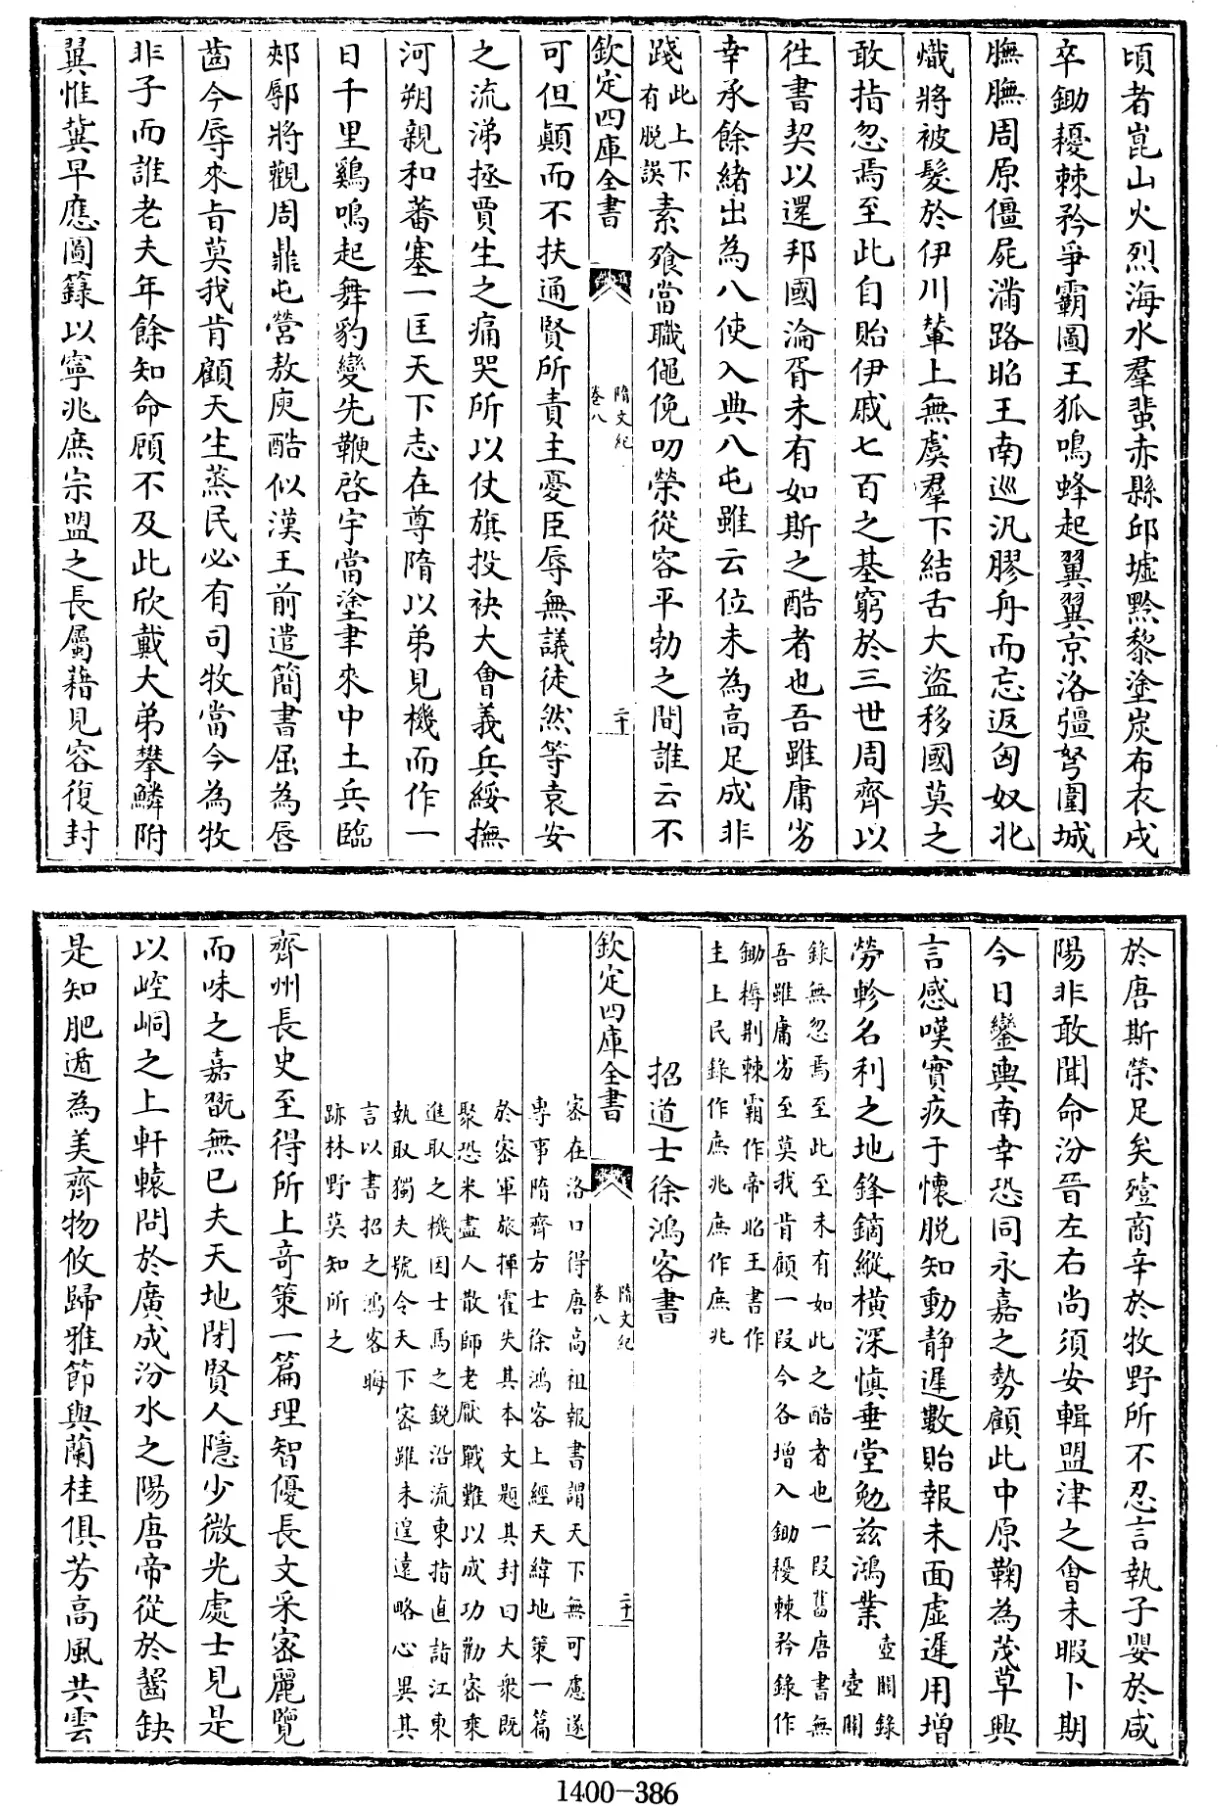 頃者崑山火烈海水羣蜚赤縣邱墟黔黎塗炭布衣戍
卒鋤耰棘矜爭霸圖王狐鳴蜂起翼翼京洛彊弩圍城
膴膴周原僵屍滿路昭王南巡汎膠舟而忘返匈奴北
熾將被髮於伊川輦上無虞羣下結舌大盜移國莫之
敢指忽焉至此自貽伊戚七百之基窮於三世周齊以
徃書契以還邦國淪胥未有如斯之酷者也吾雖庸劣
幸承餘緒出為八使入典八屯雖云位未為高足成非
踐此上下有脱誤素飱當職僶俛叨榮從容平勃之間誰云不
欽定四庫全書
隋文紀
卷八
二十
可但顛而不扶通賢所責主憂臣辱無議徒然等袁安
之流涕拯賈生之痛哭所以仗旗投袂大會義兵綏撫
河朔親和蕃塞一匡天下志在尊隋以弟見機而作一
日千里鷄鳴起舞豹變先鞭啓宇當塗聿來中土兵臨
郟鄏將觀周鼎屯營敖庾酷似漢王前遣簡書屈為唇
齒今辱來旨莫我肯顧天生蒸民必有司牧當今為牧
非子而誰老夫年餘知命願不及此欣戴大弟攀鱗附
翼惟冀早應圖籙以寧兆庶宗盟之長屬藉見容復封
於唐斯榮足矣殪商辛於牧野所不忍言執子嬰於咸
陽非敢聞命汾晉左右尚須安輯盟津之會未暇卜期
今日鑾輿南幸恐同永嘉之勢顧此中原鞠為茂草興
言感嘆實疚于懷脱知動静遲數貽報未面虛遲用增
勞軫名利之地鋒鏑縱横深慎垂堂勉兹鴻業壺關錄壺關
錄無忽焉至此至未有如此之酷者也一段舊唐書無
吾雖庸劣至莫我肯顧一段今各增入鋤耰棘矜錄作
鋤槈荆棘霸作帝昭王書作
主上民錄作庶兆庶作庶兆
招道士徐鴻客書
欽定四庫全書
隋文紀
卷八
二十一
密在洛口得唐高祖報書謂天下無可慮遂
專事隋齊方士徐鴻客上經天緯地策一篇
於密軍旅揮霍失其本文題其封曰大衆既
聚恐米盡人散師老厭戰難以成功勸密乘
進取之機因士馬之銳沿流東指直詣江東
執取獨夫號令天下密雖未遑遠略心異其
言以書招之鴻客晦
跡林野莫知所之
齊州長史至得所上奇策一篇理智優長文采密麗覽
而味之嘉翫無已夫天地閉賢人隱少微光處士見是
以崆峒之上軒轅問於廣成汾水之陽唐帝從於齧缺
是知肥遁為美齊物攸歸雅節與蘭桂俱芳高風共雲
1400-386